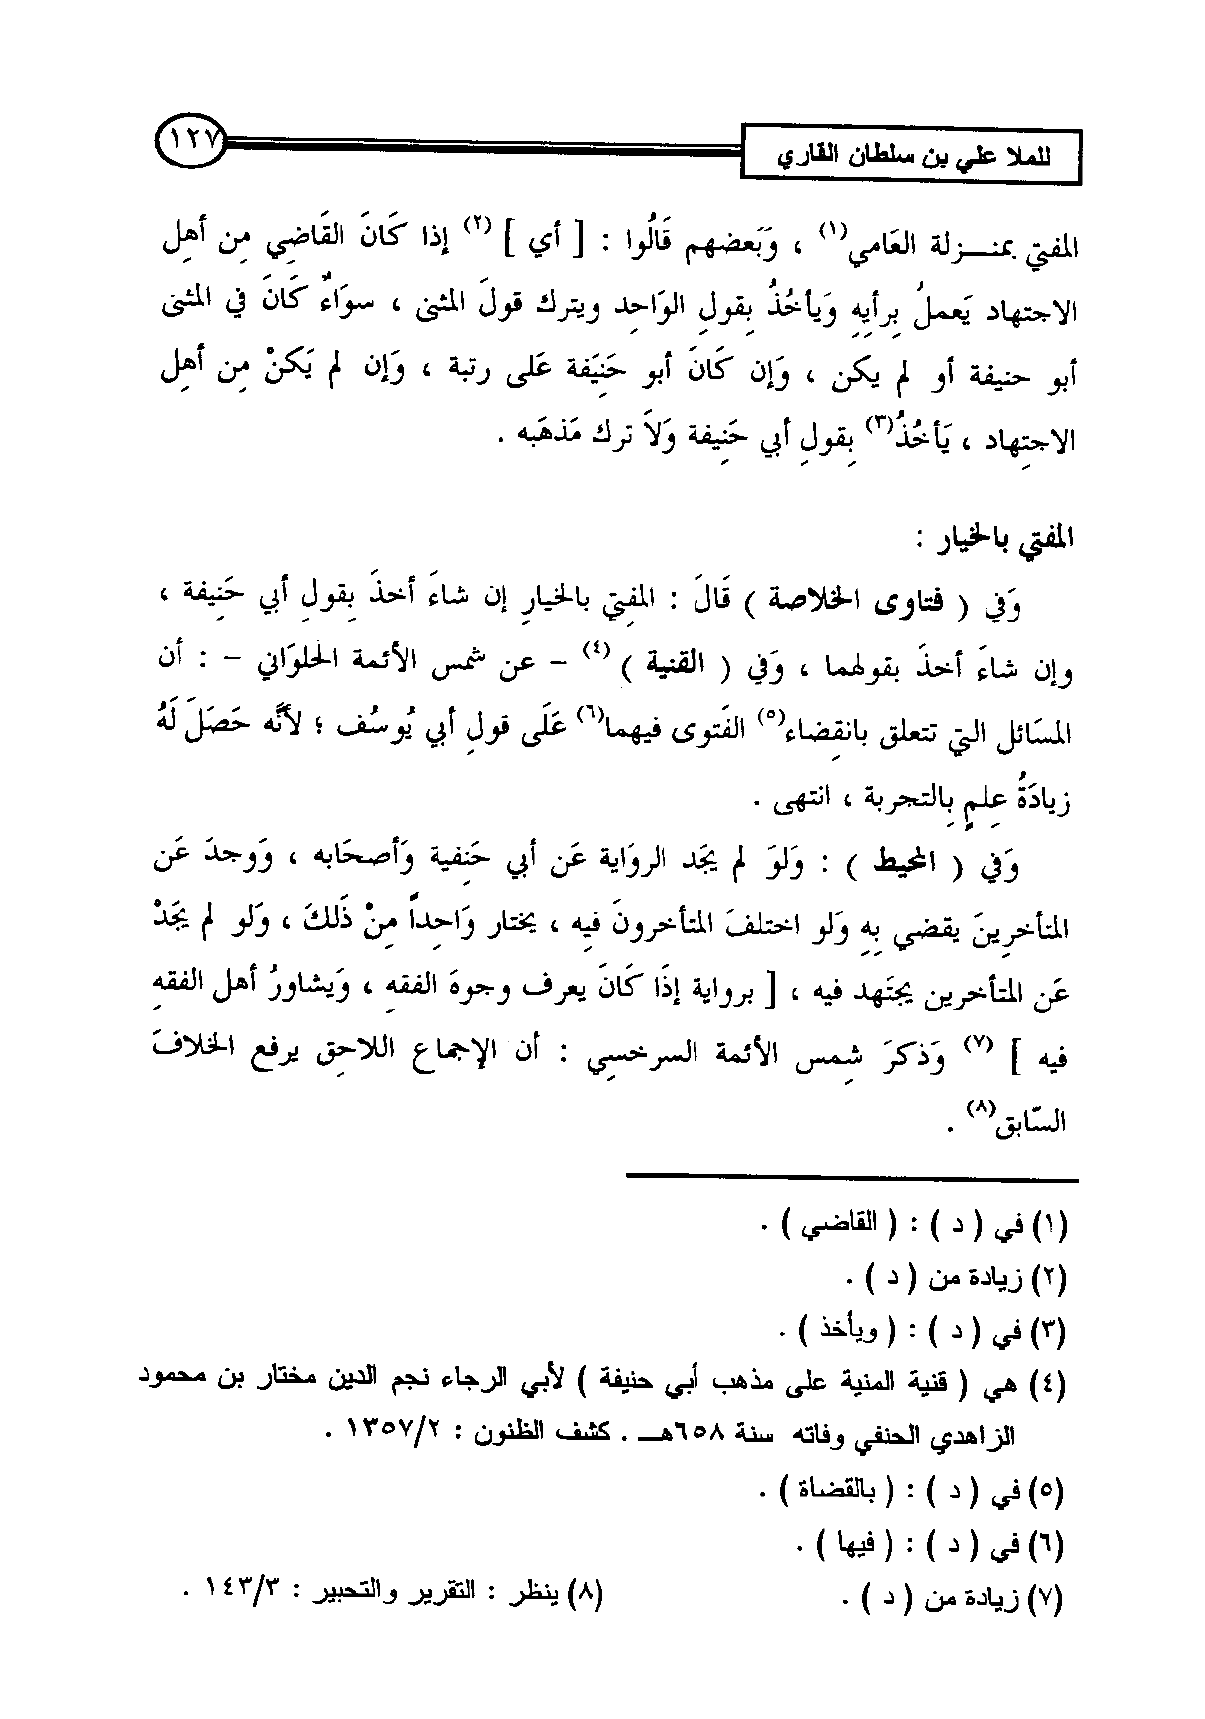 للملا علي بن سلطان القاري
١٢٧
المفتي بمنـزلة العَامي(١) ، وَبَعضهم قَالُوا : [ أي ] (٢) إذا كَانَ القَاضي مِن أهلِ
الاجتهاد يَعملُ بِرأيِهِ وَيأخُذُ بِقولِ الوَاحِد ويترك قولَ المثنى ، سوَاءٌ كَانَ في المثنى
أبو حنيفة أو لم يكن ، وَإن كَانَ أبو حَنِيَفة عَلى رتبة ، وَإن لم يَكنْ مِن أهلِ
الاجتِهاد ، يَأخُذُ(٣) بِقولِ أبي حَنِيفة وَلاَ ترك مَذهَبه .
المفتي بالخيار :
وَفي ( فتاوى الخلاصة ) قَالَ : المفتي بالخيارِ إن شاءَ أخذَ بِقولِ أبي حَنِيفة ،
وإن شاءَ أخذَ بقولهما ، وَفي ( القنية ) (٤) - عن شمس الأئمة الحلوَاني - : أن
المسَائل التي تتعلق بانقِضاء(٥) الفَتوى فيهما(٦) عَلَى قولِ أبي يُوسُف ؛ لأنَّه حَصَلَ لَهُ
زيادَةُ عِلمٍ بِالتجربة ، انتهى .
وَفي ( المحيط ) : وَلوَ لم يجَد الروَاية عَن أبي حَنِفية وَأصحَابه ، وَوجدَ عَن
المتأخرِينَ يقضي بِهِ وَلو اختلفَ المتأخرونَ فيه ، يختار وَاحِداً مِنْ ذَلكَ ، وَلو لم يجَدْ
عَن المتأخرين يجتَهد فيه ، [ برواية إذَا كَانَ يعرف وجوهَ الفقهِ ، وَيشاورُ أهل الفقهِ
فيه ] (٧) وَذكرَ شمِس الأئمة السرخسِي : أن الإجماع اللاحِق يرفع الخلافَ
السّابق(٨) .
(١) في ( د ) : ( القاضي ) .
(٢) زيادة من ( د ) .
(٣) في ( د ) : ( ويأخذ ) .
(٤) هي ( قنية المنية على مذهب أبي حنيفة ) لأبي الرجاء نجم الدين مختار بن محمود
الزاهدي الحنفي وفاته سنة ٦٥٨هـ . كشف الظنون : ١٣٥٧/٢ .
(٥) في ( د ) : ( بالقضاة ) .
(٦) في ( د ) : ( فيها ) .
(٧) زيادة من ( د ) . (٨) ينظر : التقرير والتحبير : ١٤٣/٣ .